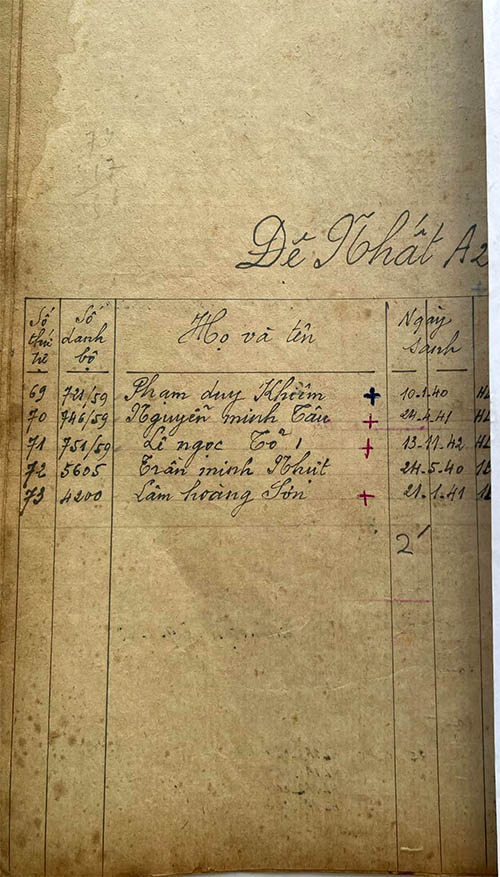 Đệ Nhất A2
Số thứ tự Số danh bộ Họ và tên Ngày sanh
69 721/59 Phạm duy Khiêm + 10-1-40
70 746/59 Nguyễn minh Tâu + 24-4-41
71 751/59 Lê ngọc Tổ 1 + 13-11-42
72 5605 Trần minh Nhựt 24-5-40
73 4200 Lâm hoàng Sơn + 21-1-41
2